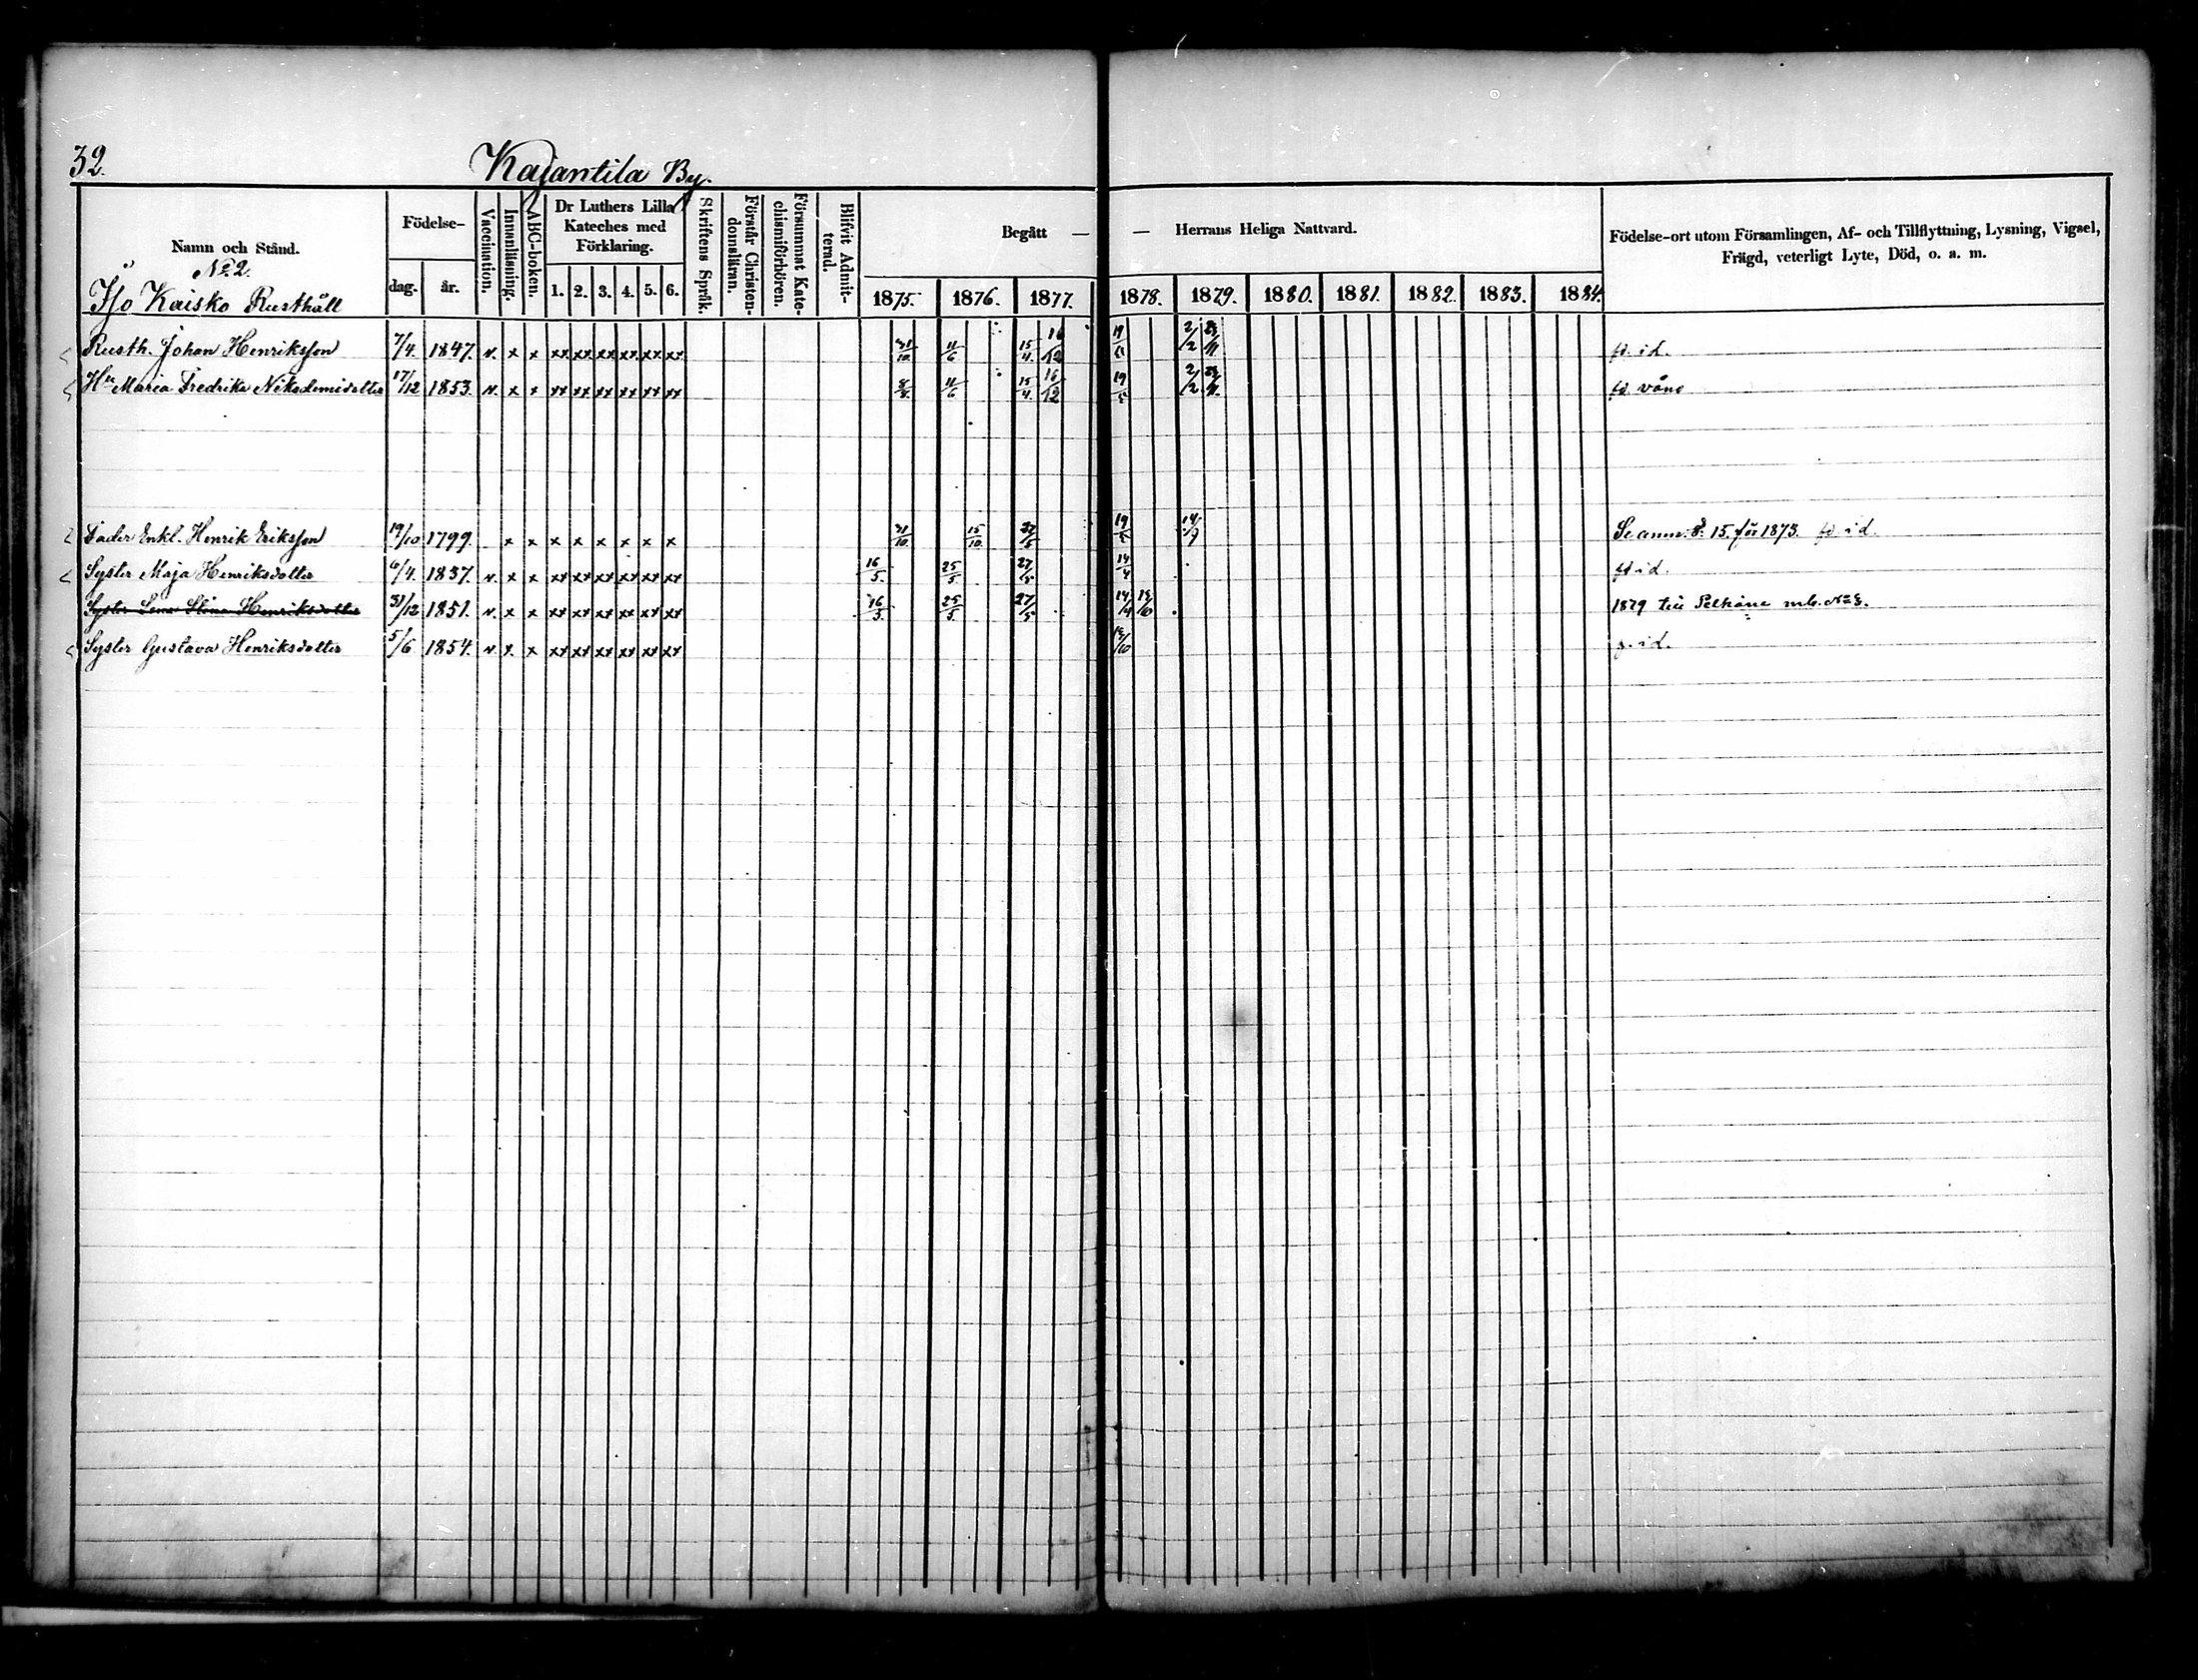 32.
Kajantila By.
Namn och Stånd.
No 2.
Iso Kaisko Rusthåll
Födelse-
dag. år.
Vaccination.
Innanläsning.
ABC-boken.
Dr Luthers Lilla
Kateches med
Förklaring.
1. 2. 3. 4. 5. 6.
Skriftens Språk.
Förstår Christen-
domsläran.
Försummat Kate-
chismiförhören.
Blifvit Admit-
terad.
Begått — — Herrans Heliga Nattvard.
1875. 1876. 1877. 1878. 1879. 1880. 1881. 1882. 1883. 1884.
Födelse-ort utom Församlingen, Af- och Tillflyttning, Lysning, Vigsel,
Frägd, veterligt Lyte, Död, o. a. m.
Rusth. Johan Henriksson 7/4. 1847. v. x x xx xx xx xx xx xx 31/10. 11/6 15/4. 16/12 19/ 2/2 23/11. id.
Hu Maria Fredrika Nikodemidotter 17/12 1853. v. x x xx xx xx xx xx xx 11/6 15/4. 16/12 19/ 2/2 23/11. våno
Fader Enkl. Henrik Eriksson 19/10 1799. x x x x x x x x 31/10. 15/10. 27/5 19/ 14/9 Se anm. s. 15. för 1873. id.
Syster Maja Henriksdotter 6/4. 1837. v. x x xx xx xx xx xx xx 16/5. 25/5 27/5 14/4 id.
Syster Lena Stina Henriksdotter 31/12 1851. v. x x xx xx xx xx xx xx 16/5. 25/5. 27/5 14/4 13/10 1879 till Pelkäne mb. No 8.
Syster Gustava Henriksdotter 5/6 1854. v. x. x xx xx xx xx xx xx 13/10 id.